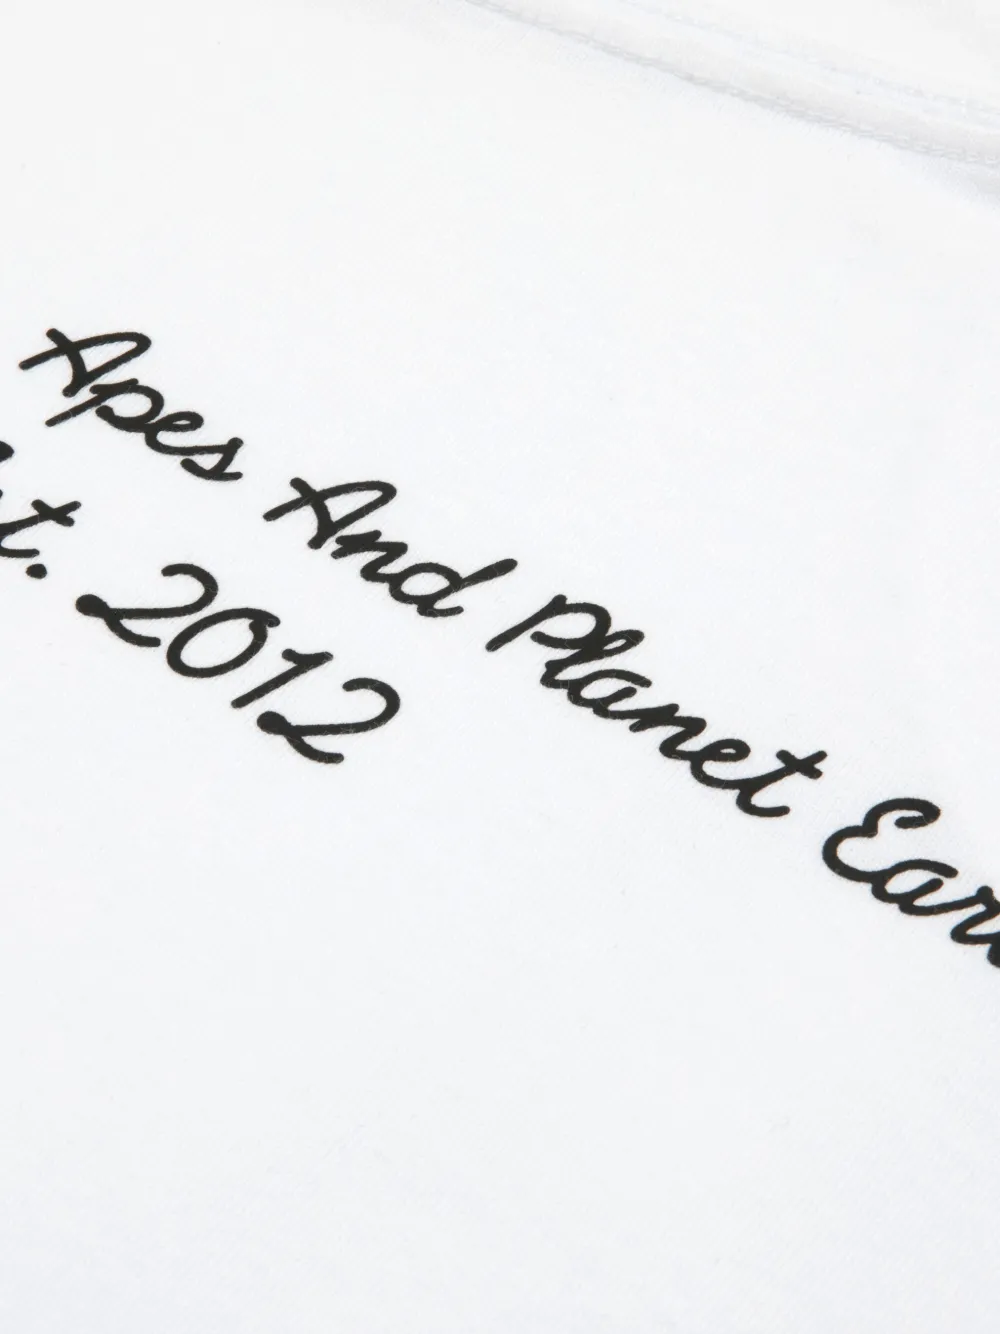 Apes And Planet Ear
t. 2012